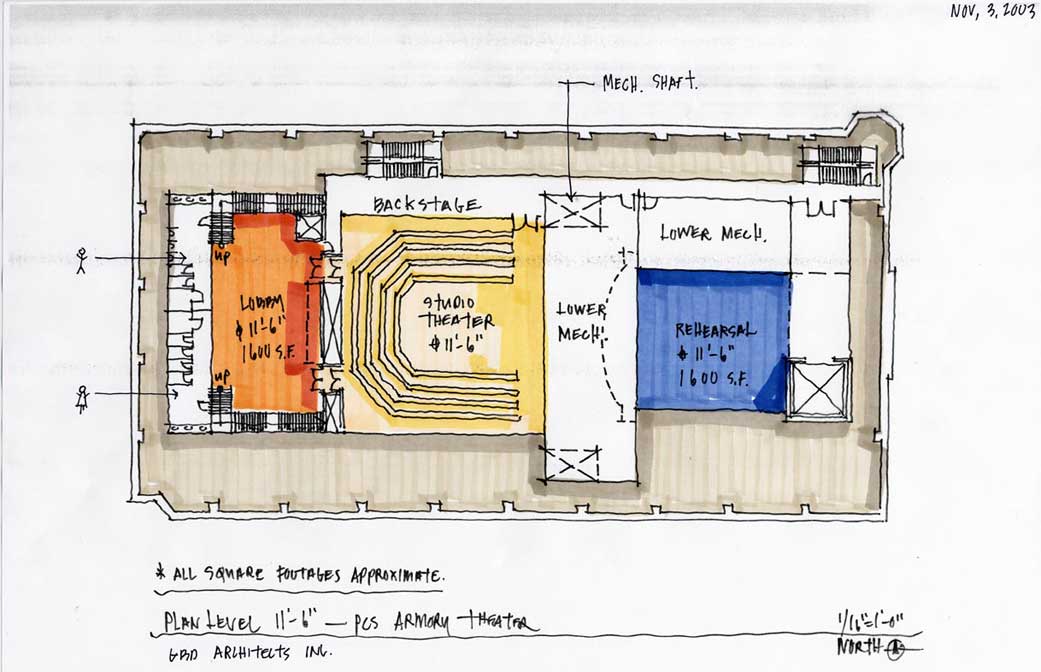 NOV, 3, 2003
MECH. SHAFT.
BACKSTAGE
LOWER MECH.
UP
LOBBY
⌖ 11'-6"
1600 S.F.
UP
STUDIO
THEATER
⌖ 11'-6"
LOWER
MECH.
REHEARSAL
⌖ 11'-6"
1600 S.F.
* ALL SQUARE FOOTAGES APPROXIMATE.
PLAN LEVEL 11'-6" — PCS ARMORY THEATER
1/16"=1'-0"
GBD ARCHITECTS INC.
NORTH